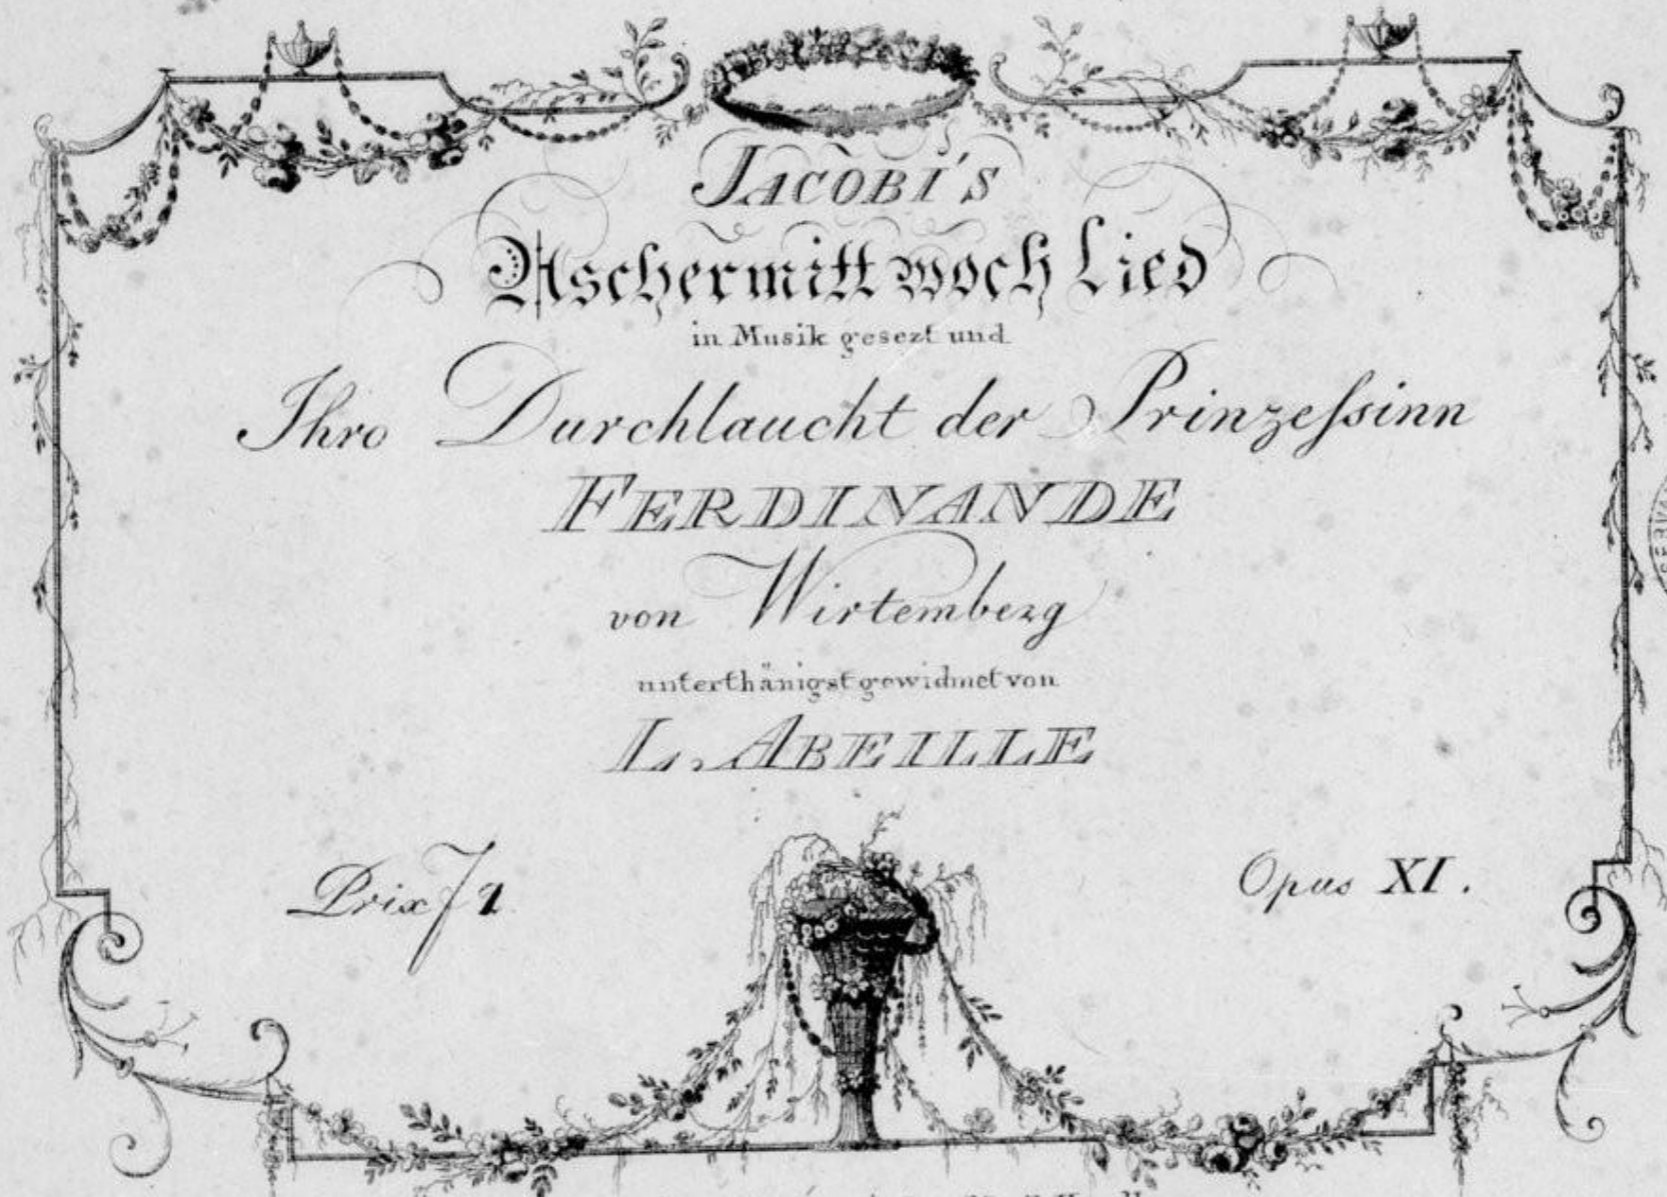 JACOBI'S
Aschermittwoch Lied
in Musik gesezt und
Ihro Durchlaucht der Prinzeſsinn
FERDINANDE
von Wirtemberg
unterthänigst gewidmet von
L. ABEILLE
Prix f 1
Opus XI.